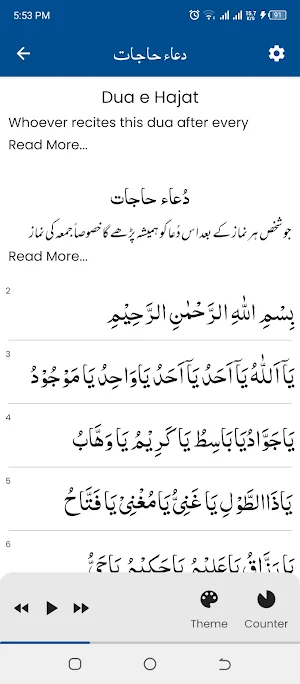 5:53 PM
15.7 K/s
91
دعاء حاجات
Dua e Hajat
Whoever recites this dua after every
Read More...
دُعاء حاجات
جو شخص ہر نماز کے بعد اس دُعا کو ہمیشہ پڑھے گا خصوصاً جمعہ کی نماز
Read More...
2
بِسْمِ اللّٰهِ الرَّحْمٰنِ الرَّحِيْمِ
3
يَآ اَللّٰهُ يَآ اَحَدُ يَآ اَحَدُ يَاوَاحِدُ يَا مَوْجُوْدُ
4
يَاجَوَّادُ يَا بَاسِطُ يَا كَرِيْمُ يَا وَهَّابُ
5
يَاذَا الطَّوْلِ يَا غَنِيُّ يَا مُغْنِيْ يَا فَتَّاحُ
6
يَا رَزَّاقُ يَا عَلِيْمُ يَا حَكِيْمُ يَا حَيُّ
Theme
Counter